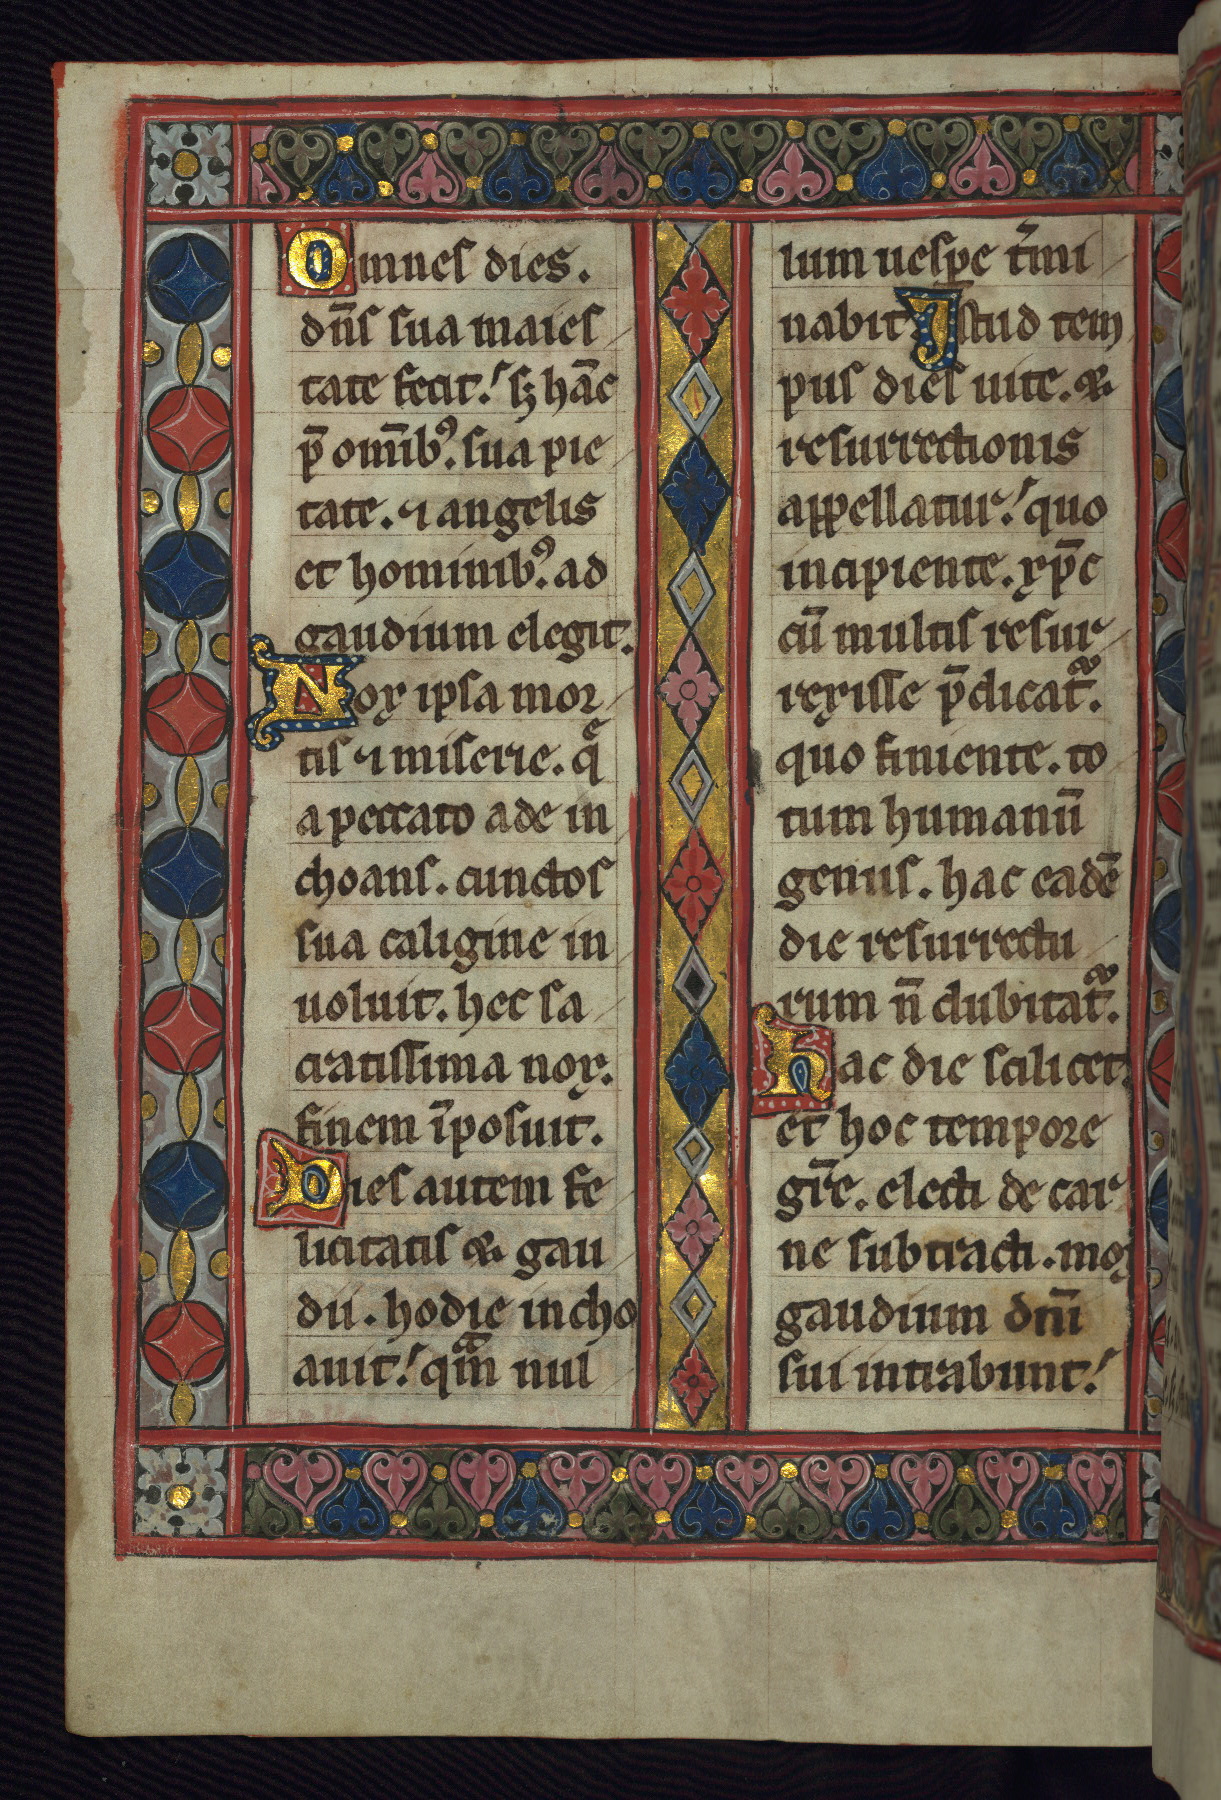 Omnes dies.
dn̄s sua maies
tate fecit! sꝫ hāc
p̄ omīb⁹. sua pie
tate. ⁊ angelis
et hominib⁹. ad
gaudium elegit.
Nox ipsa mor
tis ⁊ miserie. q̄
a peccato ade in
choans. cunctos
sua caligine in
uoluit. hec sa
cratissima nox.
finem īposuit.
Dies autem fe
licitatis & gau
dii. hodie incho
auit! qm̄ nul
lum uesp̄e t̄mi
nabit. Istud tem
pus dies uite. &
resurrectionis
appellatur! quo
incipiente. xp̄c
cū multis resur
rexisse p̄dicat᷑.
quo finiente. to
tum humanū
genus. hac eadē
die resurrectu
rum n̄ dubitat᷑.
Hac die scilicet.
et hoc tempore
gr̄e. electi de car
ne subtracti. mox
gaudium dn̄i
sui intrabunt!